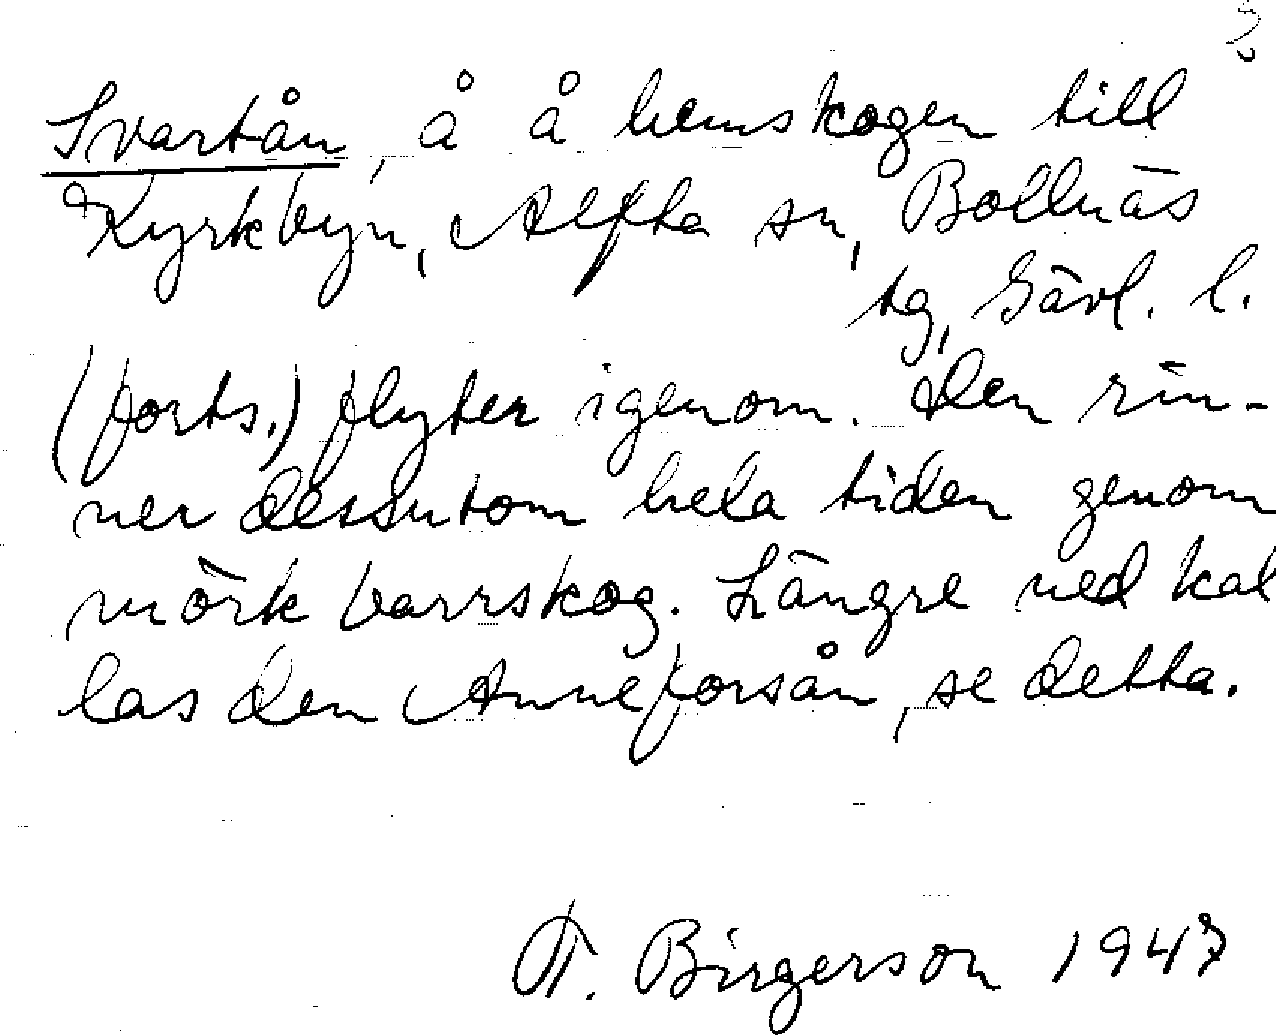 Svartån, å å hemskogen till
Kyrkbyn, Alfta sn, Bollnäs
tg, Gävl. l.
(forts.) flyter igenom. Den rin-
ner dessutom hela tiden genom
mörk barrskog. Längre ned kal
las den Anneforsån, se detta.
Birgerson 1947